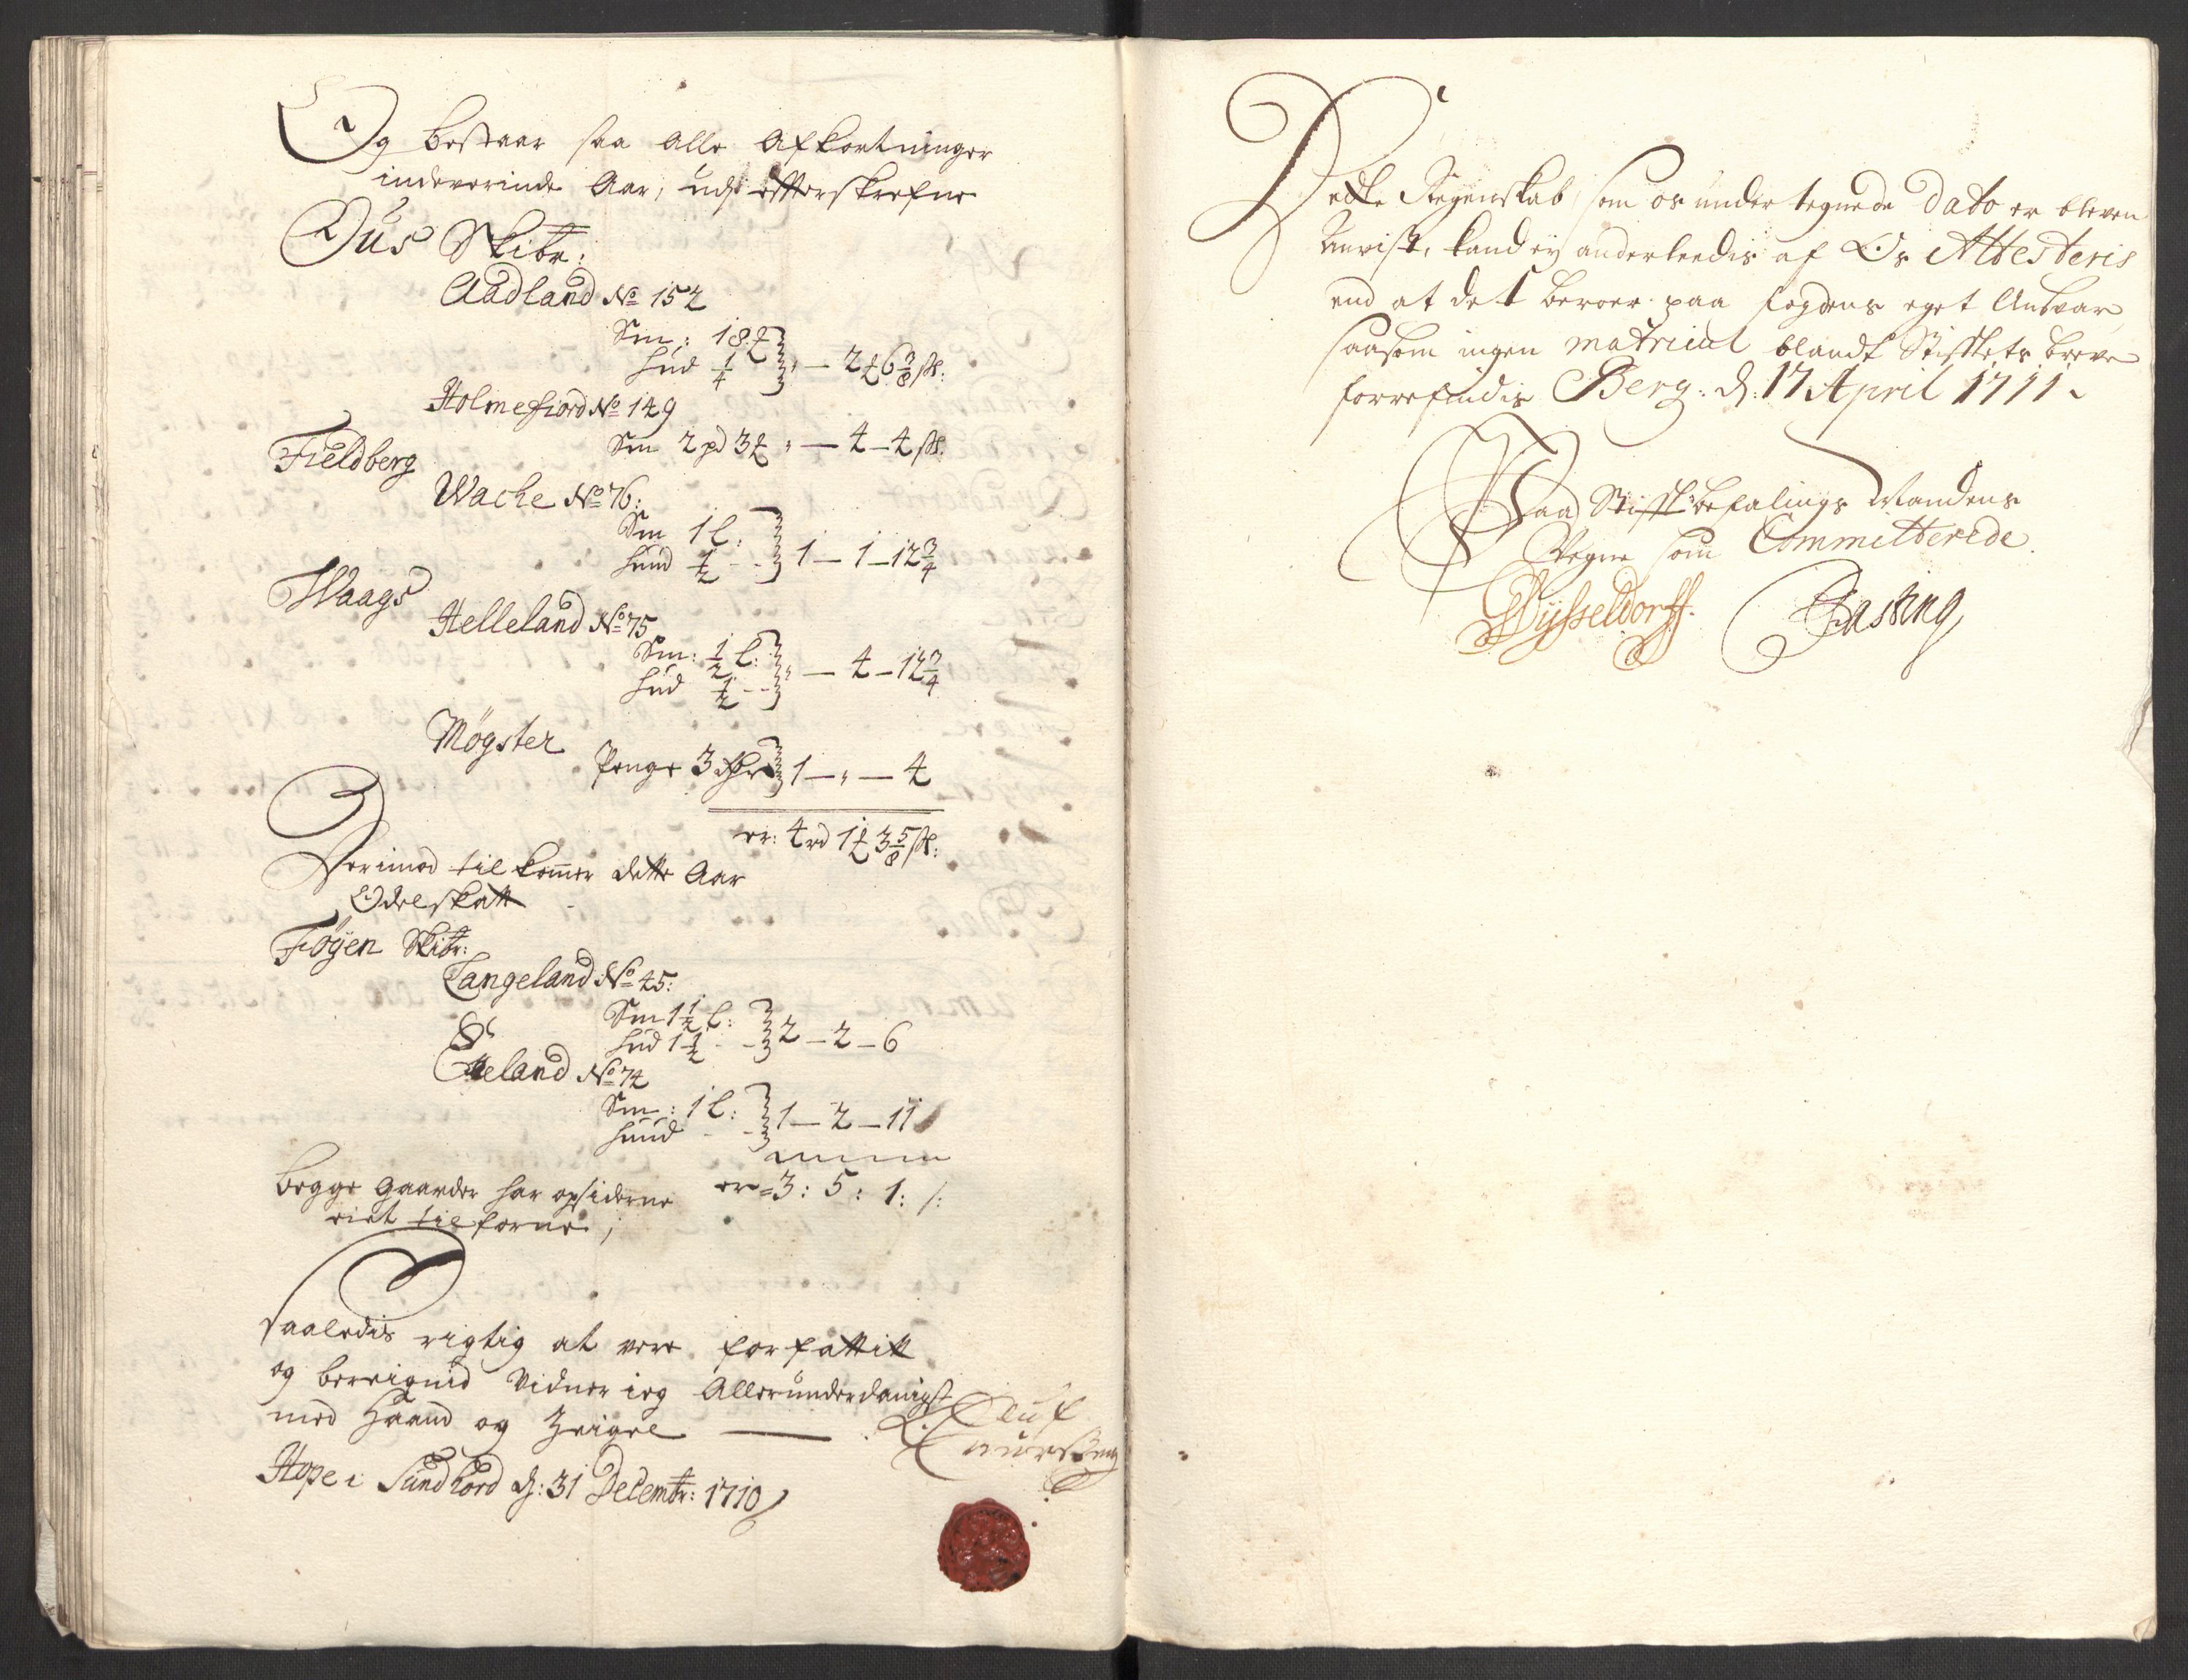 Og bestaar saa alle Afkortninger
indeverinde Aar, udj effterskrefne
Ous Skibr:
Aadland No 152
Sm: 18 ₰
Hud 1/4 } " — 2 ₰ 6 3/8 ss:
Holmefiord No 149
Sm 2 pd 3 ₰ " — 4 — 4 ss.
Fieldberg
Wache No 76:
Sm 1 l:
Huud 1/2 - - } 1 — 1 — 12 3/4
Waags
Helleland No 75
Sm: 1/2 l:
Hud 1/2 - - } " — 4 — 12 3/4
Møgster
Penge 3 } 1 — " — 4
er: 4 rd 1 ₰ 3 5/8 ss:
Derimod tilkomer dette Aar
Odelskatt
Føyen Skibr:
Langeland No 45:
Sm 1 1/2 l:
Hud 1 1/2 - - } 2 — 2 — 6
&
No 74
Sm: 1 l:
Huud - - } 1 — 2 — 11
begge Gaarder har opsiderne er = 3: 5: 1: /:
eiet tilforne;
Saaledis rigtig at vere forfattitt
og bereignid Vidner ieg Allerunderdanigst
med Haand og Zeigel —
Hope i Sundhord d: 31 Decembr: 1710
Oluf
Laurssen
Dette Regenskab, som os undertegnede Dato er bleven
Anvist, kand ey anderleedis af Os Attesteris
end at det beroer paa fogdens eget Ansvar,
saasom ingen matricul blandt Stifftets breve
forrefindis Berg: d: 17 April 1711.
Paa Stifftbefalings Mandens
Vegne som Committerede.
Wysseldorff. Fasting